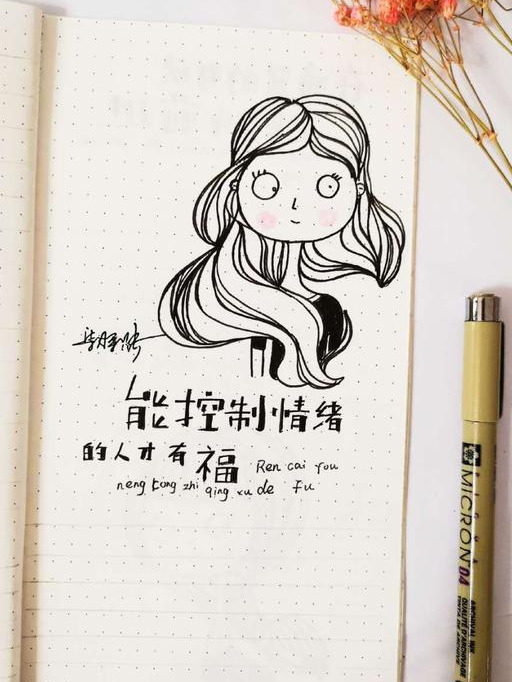 能控制情绪
的人才有福
Ren cai you
neng kong zhi qing xu de Fu
MICRON 04
ARCHIVAL INK